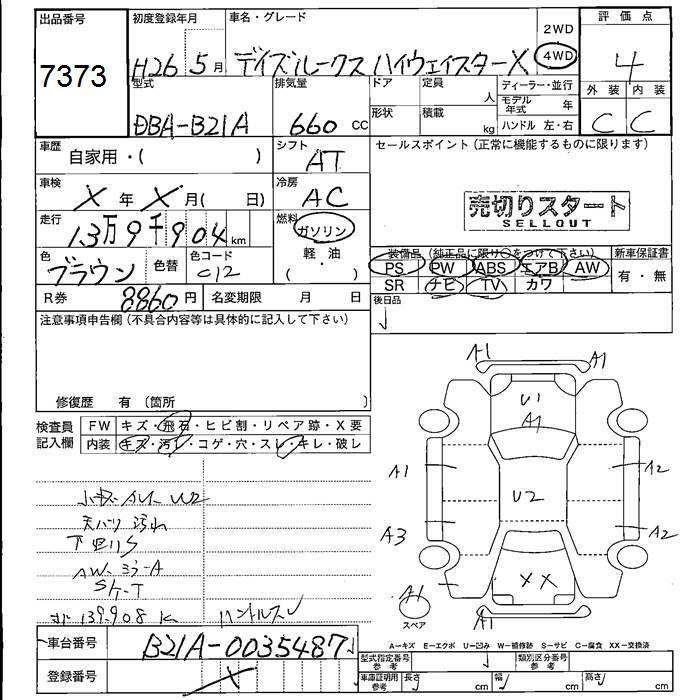 出品番号 初度登録年月 車名・グレード 評価点
7373 H26 5月 デイズルークス ハイウェイスターX 2WD 4WD 4
型式 排気量 ドア 定員 人 ディーラー・並行 外装 内装
DBA-B21A 660 CC 形状 積載 kg モデル年式 年 ハンドル 左・右 C C
車歴 自家用・( ) シフト AT セールスポイント(正常に機能するものに限ります)
車検 X 年 X 月( 日) 冷房 AC 売切りスタート
SELLOUT
走行 13万9千904km 燃料 ガソリン
色 ブラウン 色替 色コード C12 (軽・油)
装備品(純正品に限り○をつけて下さい) 新車保証書
PS PW ABS エアB AW 有・無
SR ナビ TV カワ
R券 8860円 名変期限 月 日 後日品
注意事項申告欄(不具合内容等は具体的に記入して下さい)
修復歴 有 (箇所 )
検査員記入欄 FW キズ・飛石・ヒビ割・リペア跡・X要
内装 キズ・汚レ・コゲ・穴・スレ・キレ・破レ
A1 A1
U1
A1
A1 A2
U2
A3 A2
XX
A1 A1
スペア
小キズ AU U2
天ハリ 汚れ
AW ミラーA
139908 K ハンドルスレ
A=キズ E=エクボ U=凹み W=補修跡 S=サビ C=腐食 XX=交換済
車台番号 B21A-0035487
登録番号 X
型式指定番号参考 類別区分番号参考
車庫証明用参考 長さ cm 幅 cm 高さ cm